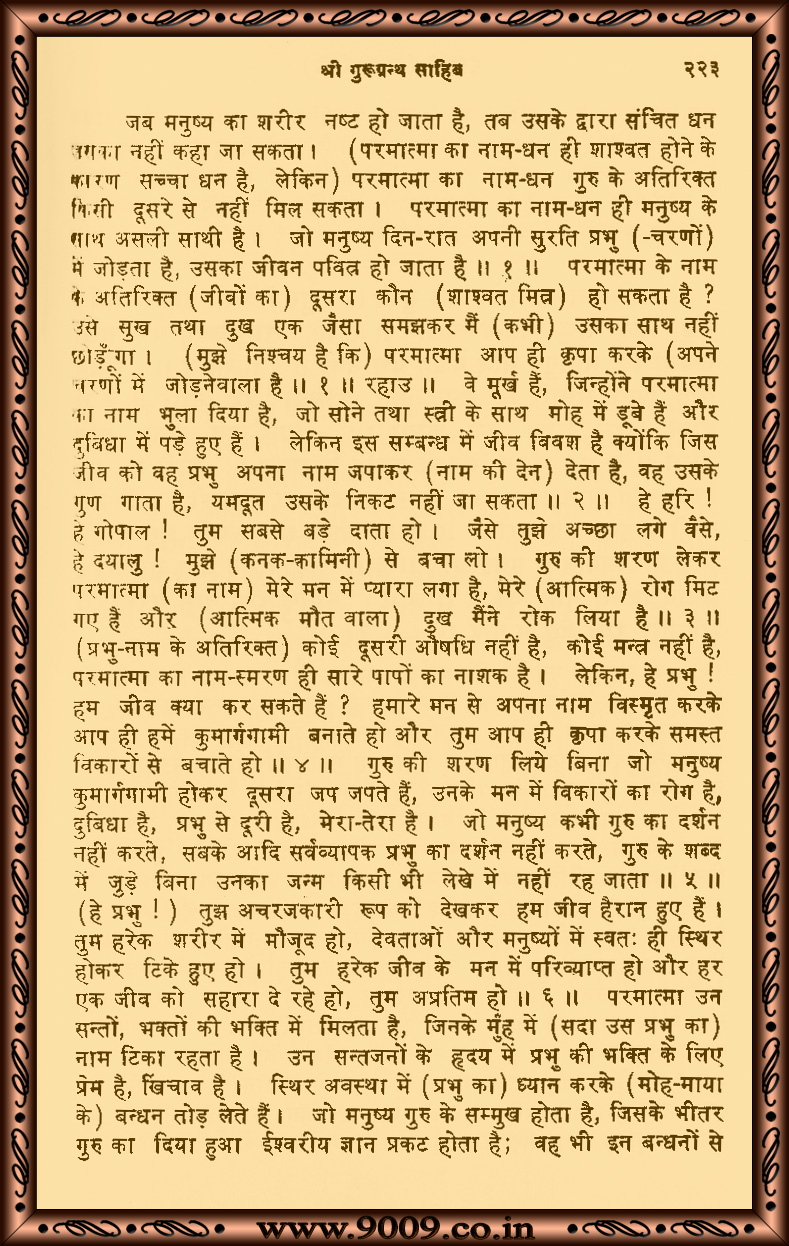 श्री गुरूग्रन्थ साहिब २२३
जब मनुष्य का शरीर नष्ट हो जाता है, तब उसके द्वारा संचित धन
उसका नहीं कहा जा सकता। (परमात्मा का नाम-धन ही शाश्वत होने के
कारण सच्चा धन है, लेकिन) परमात्मा का नाम-धन गुरु के अतिरिक्त
किसी दूसरे से नहीं मिल सकता। परमात्मा का नाम-धन ही मनुष्य के
साथ असली साथी है। जो मनुष्य दिन-रात अपनी सुरति प्रभु (-चरणों)
में जोड़ता है, उसका जीवन पवित्र हो जाता है॥ १॥ परमात्मा के नाम
के अतिरिक्त (जीवों का) दूसरा कौन (शाश्वत मित्र) हो सकता है?
उसे सुख तथा दुख एक जैसा समझकर मैं (कभी) उसका साथ नहीं
छोड़ूँगा। (मुझे निश्चय है कि) परमात्मा आप ही कृपा करके (अपने
चरणों में जोड़नेवाला है॥ १॥ रहाउ॥ वे मूर्ख हैं, जिन्होंने परमात्मा
का नाम भुला दिया है, जो सोने तथा स्त्री के साथ मोह में डूबे हैं और
दुबिधा में पड़े हुए हैं। लेकिन इस सम्बन्ध में जीव विवश है क्योंकि जिस
जीव को वह प्रभु अपना नाम जपाकर (नाम की देन) देता है, वह उसके
गुण गाता है, यमदूत उसके निकट नहीं जा सकता॥ २॥ हे हरि!
हे गोपाल! तुम सबसे बड़े दाता हो। जैसे तुझे अच्छा लगे वैसे,
हे दयालु! मुझे (कनक-कामिनी) से बचा लो। गुरु की शरण लेकर
परमात्मा (का नाम) मेरे मन में प्यारा लगा है, मेरे (आत्मिक) रोग मिट
गए हैं और (आत्मिक मौत वाला) दुख मैंने रोक लिया है॥ ३॥
(प्रभु-नाम के अतिरिक्त) कोई दूसरी औषधि नहीं है, कोई मन्त्र नहीं है,
परमात्मा का नाम-स्मरण ही सारे पापों का नाशक है। लेकिन, हे प्रभु!
हम जीव क्या कर सकते हैं? हमारे मन से अपना नाम विस्मृत करके
आप ही हमें कुमार्गगामी बनाते हो और तुम आप ही कृपा करके समस्त
विकारों से बचाते हो॥ ४॥ गुरु की शरण लिये बिना जो मनुष्य
कुमार्गगामी होकर दूसरा जप जपते हैं, उनके मन में विकारों का रोग है,
दुबिधा है, प्रभु से दूरी है, मेरा-तेरा है। जो मनुष्य कभी गुरु का दर्शन
नहीं करते, सबके आदि सर्वव्यापक प्रभु का दर्शन नहीं करते, गुरु के शब्द
में जुड़े बिना उनका जन्म किसी भी लेखे में नहीं रह जाता॥ ५॥
(हे प्रभु!) तुझ अचरजकारी रूप को देखकर हम जीव हैरान हुए हैं।
तुम हरेक शरीर में मौजूद हो, देवताओं और मनुष्यों में स्वतः ही स्थिर
होकर टिके हुए हो। तुम हरेक जीव के मन में परिव्याप्त हो और हर
एक जीव को सहारा दे रहे हो, तुम अप्रतिम हो॥ ६॥ परमात्मा उन
सन्तों, भक्तों की भक्ति में मिलता है, जिनके मुंह में (सदा उस प्रभु का)
नाम टिका रहता है। उन सन्तजनों के हृदय में प्रभु की भक्ति के लिए
प्रेम है, खिंचाव है। स्थिर अवस्था में (प्रभु का) ध्यान करके (मोह-माया
के) बन्धन तोड़ लेते हैं। जो मनुष्य गुरु के सम्मुख होता है, जिसके भीतर
गुरु का दिया हुआ ईश्वरीय ज्ञान प्रकट होता है; वह भी इन बन्धनों से
www.9009.co.in